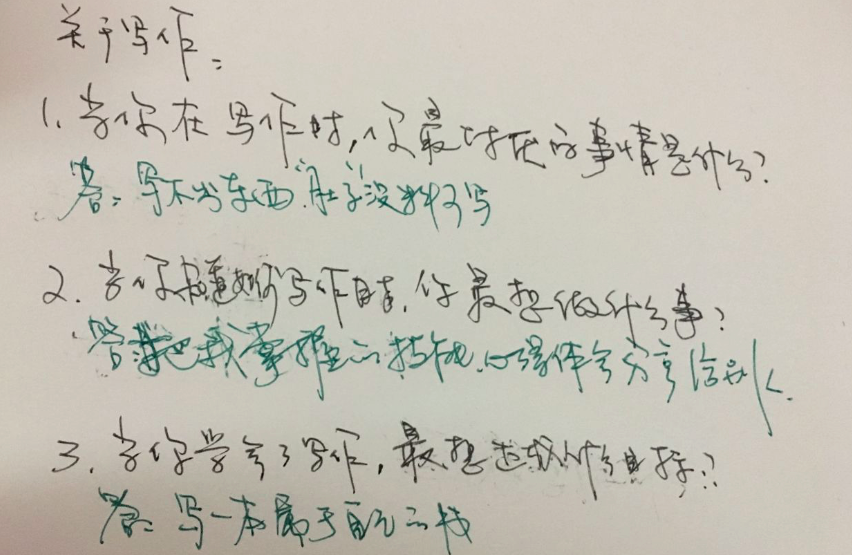 关于写作：
1. 当你在写作时，你最讨厌的事情是什么？
答：写不出东西，肚子没料可写
2. 当你知道如何写作时，你最想做什么事？
答：我把我掌握的技能、心得体会分享给别人．
3. 当你学会了写作，最想达成什么目标？
答：写一本属于自己的书